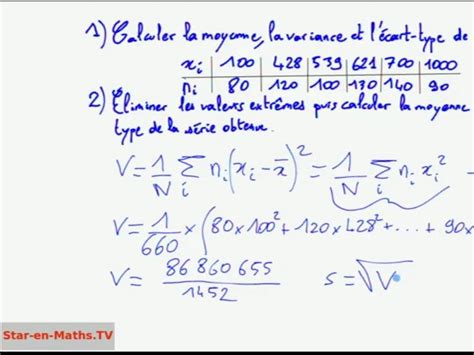 1) Calculer la moyenne, la variance et l'écart-type de
xᵢ | 100 | 428 | 539 | 621 | 700 | 1000
nᵢ | 80 | 120 | 100 | 130 | 140 | 90
2) Éliminer les valeurs extrêmes puis calculer la moyenne
type de la série obtenue.
V = 1/N Σᵢ nᵢ(xᵢ - x̄)² = 1/N Σᵢ nᵢ xᵢ² -
V = 1/660 × (80×100² + 120×428² + ... + 90×
V = 86 860 655 / 1452 s = √V
Star-en-Maths.TV